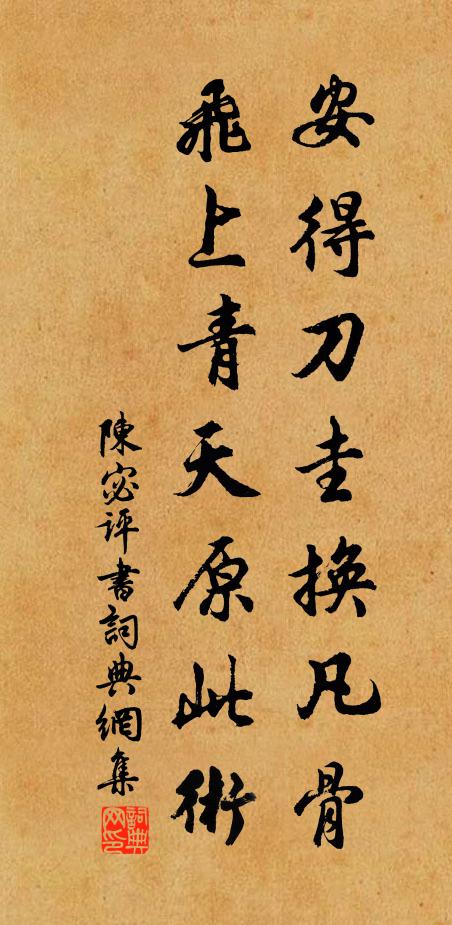 安得刀圭換凡骨
飛上青天原此術
陳宓評書詞典網集
詞典网印